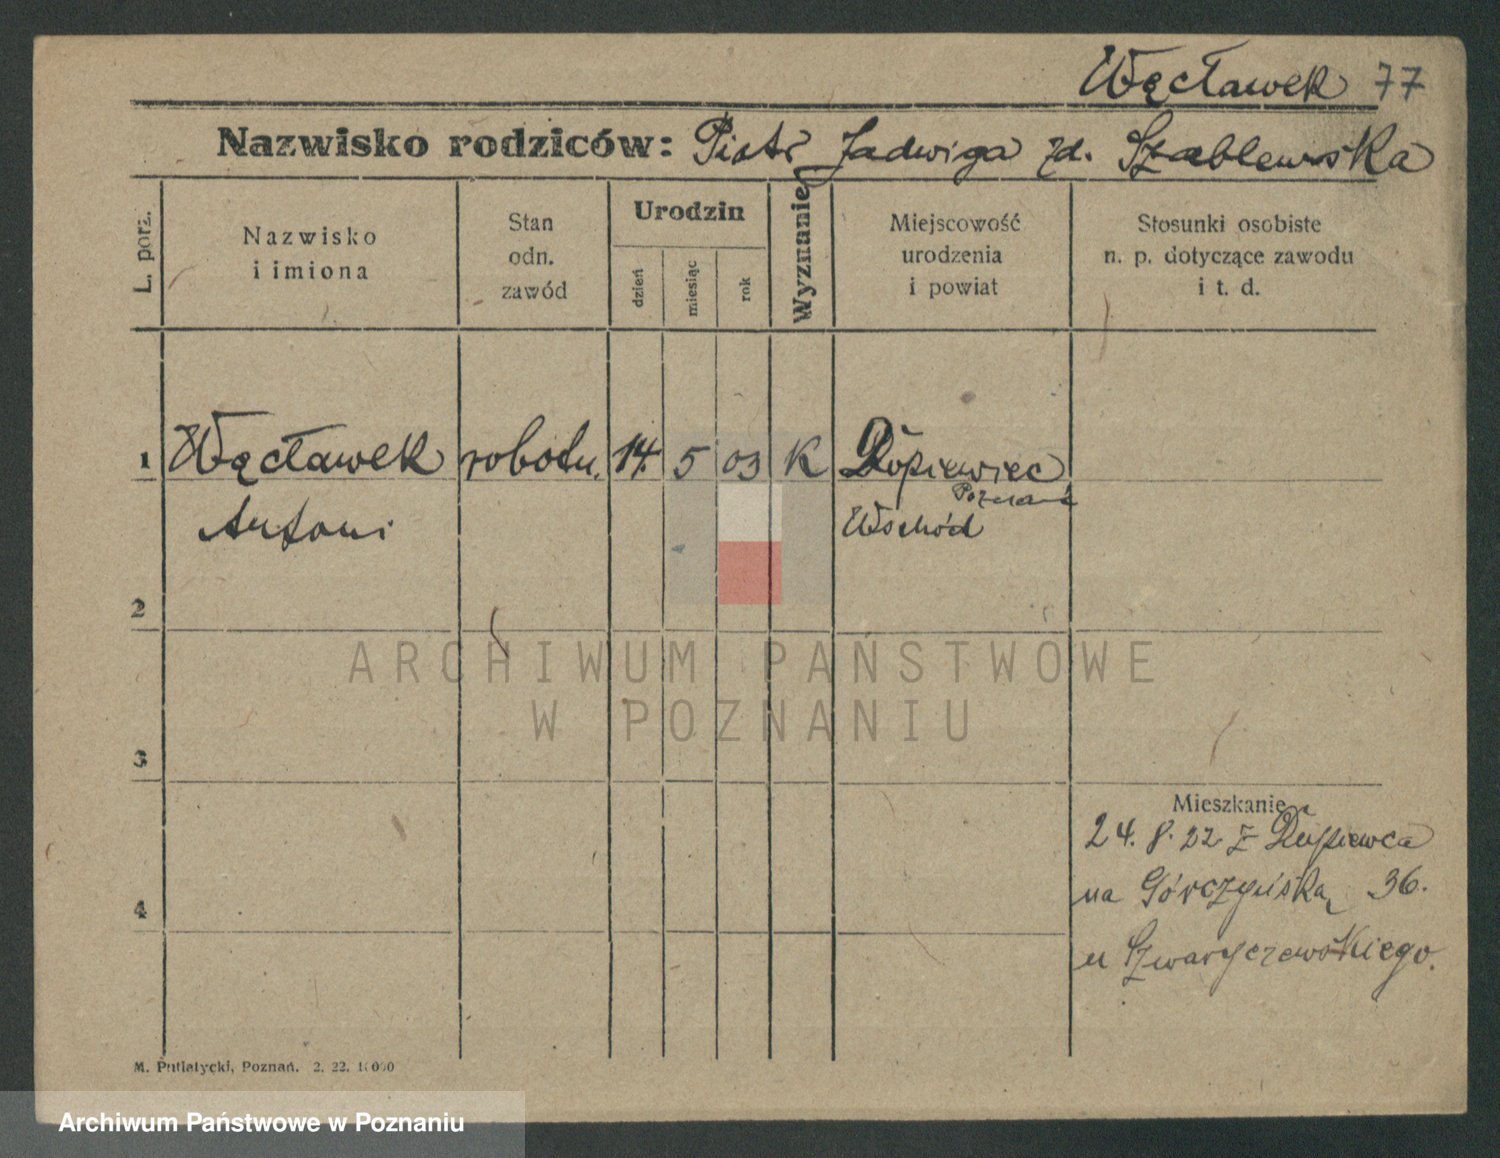 Węcławek 77
Nazwisko rodziców: Piotr Jadwiga zd. Szablewska
L. porz.
Nazwisko
i imiona
Stan
odn.
zawód
Urodzin
dzień
miesiąc
rok
Wyznanie
Miejscowość
urodzenia
i powiat
Stosunki osobiste
n. p. dotyczące zawodu
i t. d.
1 Węcławek robotn. 14. 5 03 K Dopiewiec
Poznań
Antoni Wschód
2
3
4
Mieszkanie
24. 8. 22 z Dopiewca
na Górczyńską 36.
u Szwaryczewskiego.
M. Putiatycki, Poznań. 2. 22.
ARCHIWUM PAŃSTWOWE
W POZNANIU
Archiwum Państwowe w Poznaniu